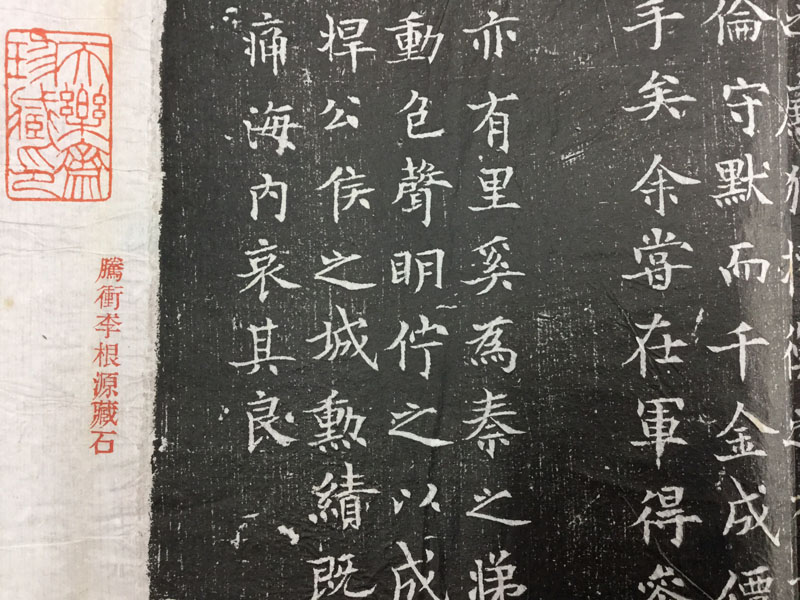 倫守默而千金成價
手矣余嘗在軍得
亦有里奚為秦之
動色聲明佇之以成
捍公侯之城勳績既
痛海內哀其良
騰衝李根源藏石
樂齋珍藏印